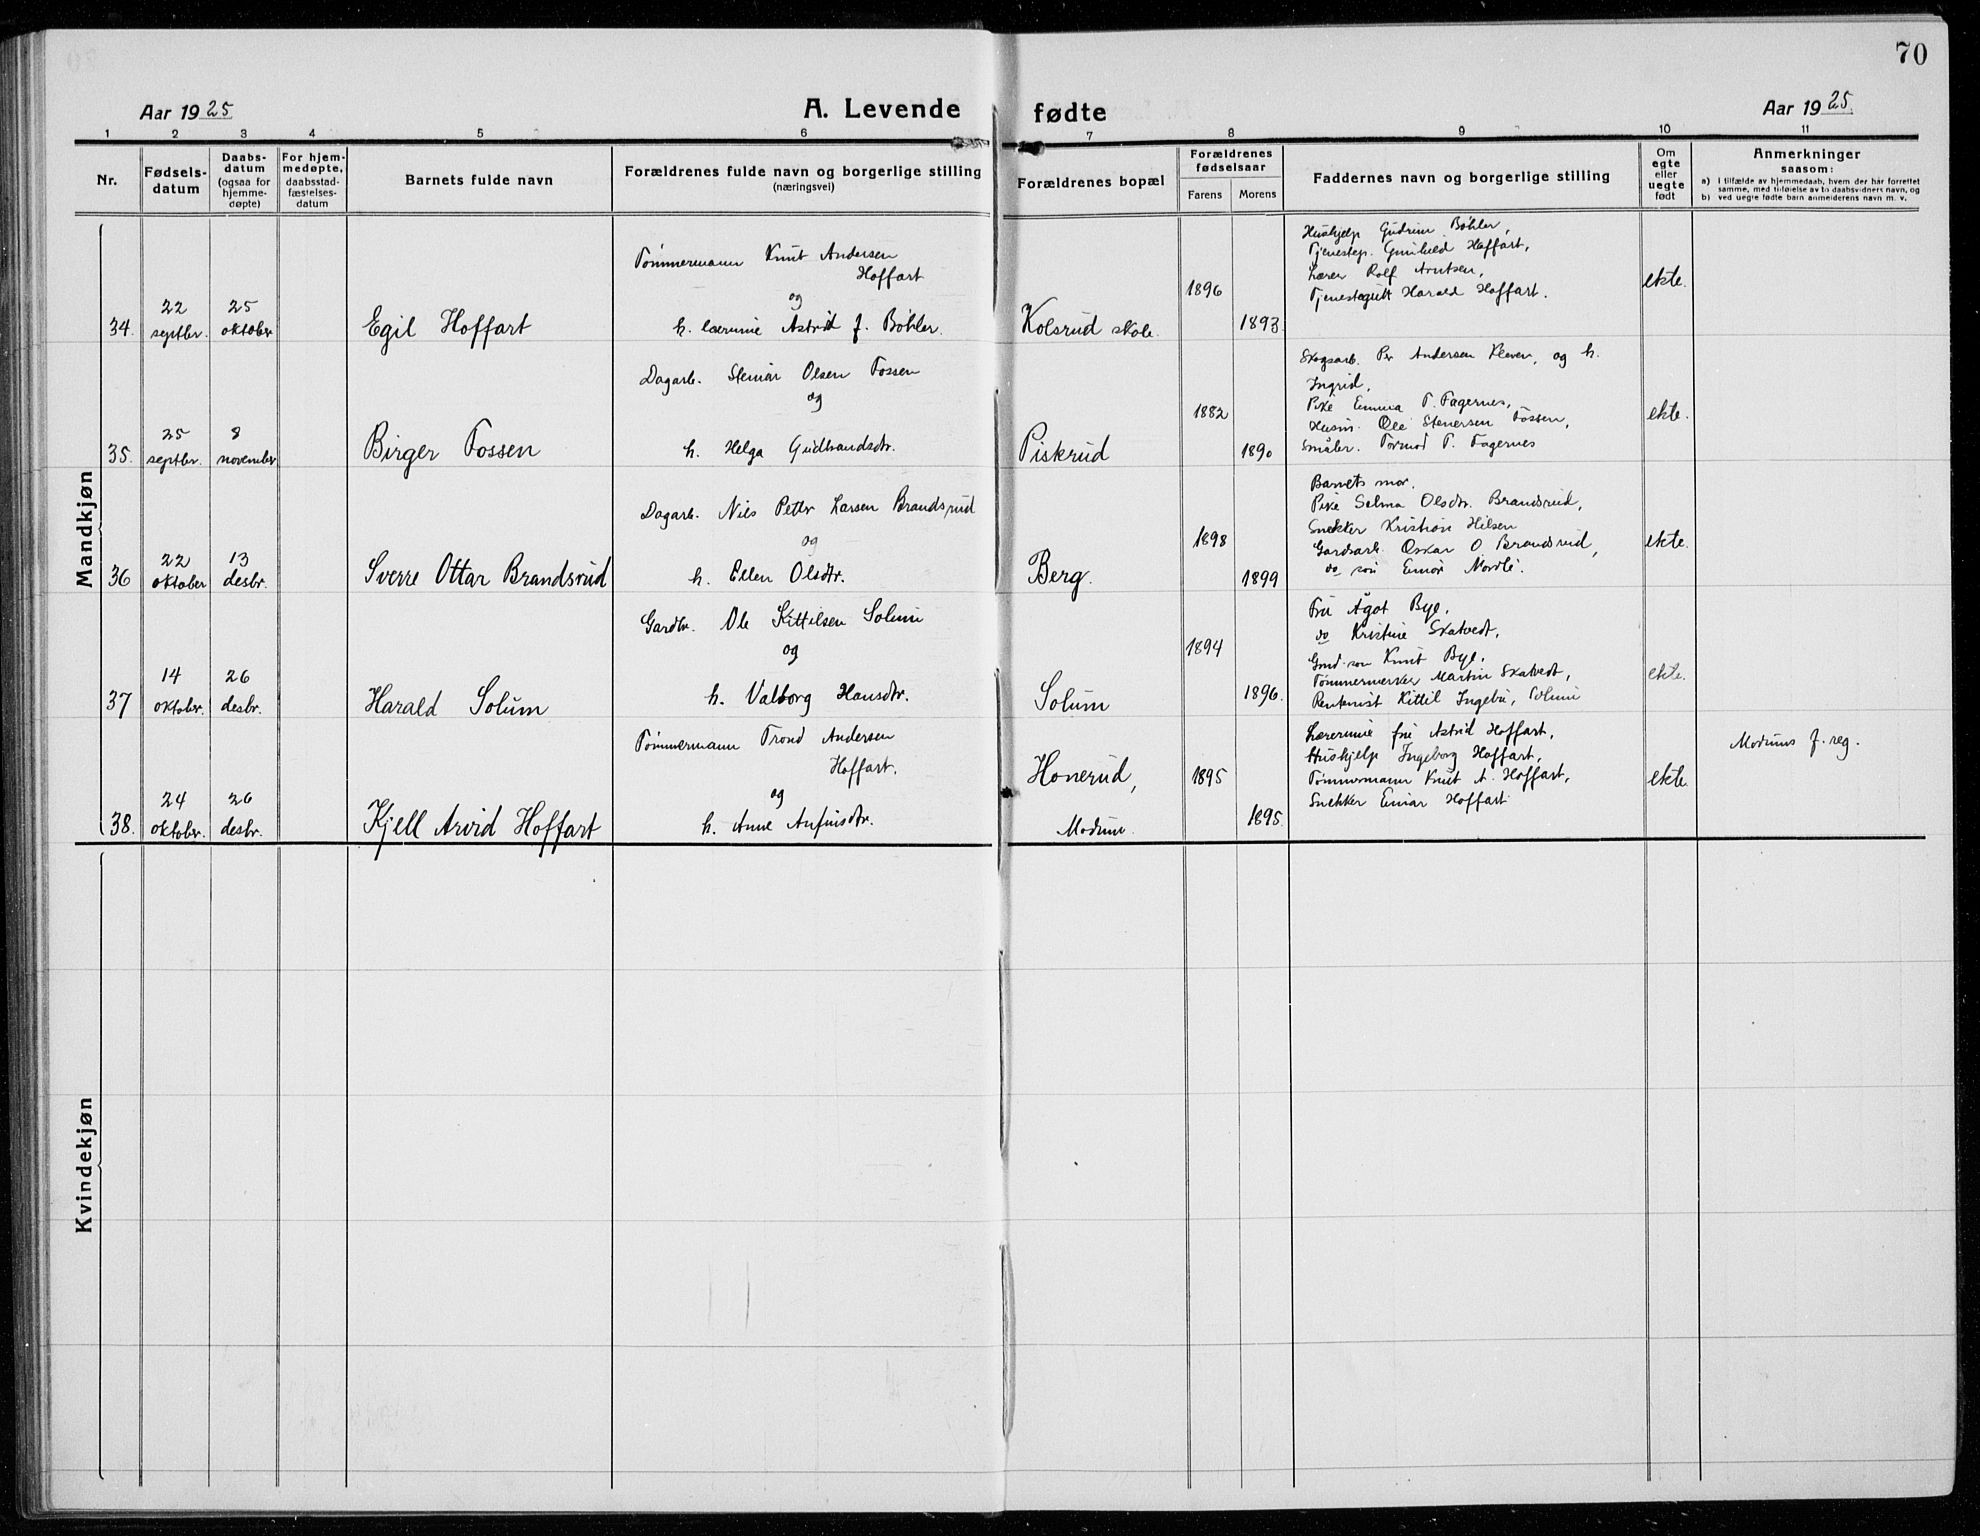 70
Aar 1925
A. Levende fødte
Aar 1925
1 2 3 4 5 6 7 8 9 10 11
Nr.
Fødsels-
datum
Daabs-
datum
(ogsaa for
hjemme-
døpte)
For hjem-
medøpte,
daabsstad-
fæstelses-
datum
Barnets fulde navn
Forældrenes fulde navn og borgerlige stilling
(næringsvei)
Forældrenes bopæl
Forældrenes
fødselsaar
Farens Morens
Faddernes navn og borgerlige stilling
Om
egte
eller
uegte
født
Anmerkninger
saasom:
a) i tilfælde av hjemmedaab, hvem der har forrettet
samme, med tilføielse av to daabsvidners navn, og
b) ved uegte fødte barn anmelderens navn m. v.
Mandkjøn
34.
22
septbr.
25
oktober
Egil Hoffart
Tømmermann Knut Andersen
Hoffart
og
h. lærerinne Astrid f. Bøhler.
Kolsrud skole.
1896
1893.
Hushjelp Gudrun Bøhler,
Tjenestep. Gunhild Hoffart,
Lærer Rolf Arntsen,
Tjenestegutt Harald Hoffart.
ekte.
35.
25
septbr.
8
november
Birger Fossen
Dagarb. Stenar Olsen Fossen
og
h. Helga Gudbrandsdtr.
Piskerud
1882
1890
Skogsarb. Per Andersen Kleven, og h.
Ingrid,
Pike Emma T. Fagernes,
Husm. Ole Stenersen Fossen,
Småbr. Tormod T. Fagernes
ekte.
36
22
oktober
13
desbr.
Sverre Ottar Brandsrud
Dagarb. Nils Petter Larsen Brandsrud
og
h. Ellen Olsdtr.
Berg.
1898
1899
Barnets mor.
Pike Selma Olsdtr. Brandsrud,
Snekker Kristian Hilsen
Gardsarb. Oskar O. Brandsrud,
do søn Einar Nordli.
ekte.
37
14
oktober.
26
desbr.
Harald Solum
Gardbr. Ole Kittilsen Solum
og
h. Valborg Hansdtr.
Solum
1894
1896.
Fru Ågot Bye,
do Kristine Skatvedt,
Gmd. søn Knut Bye,
Tømmermerker Martin Skatvedt,
Rentenist Kittil Ingebr. Solum
ekte.
38.
24
oktober.
26
desbr.
Kjell Arvid Hoffart
Tømmermann Trond Andersen
Hoffart.
og
h. Anne Anfinsdtr.
Honerud,
Modum.
1895
1895.
Lærerinne fru Astrid Hoffart,
Hushjelp Ingeborg Hoffart,
Tømmermann Knut A. Hoffart,
Snekker Einar Hoffart
ekte.
Modums f. reg.
Kvindekjøn